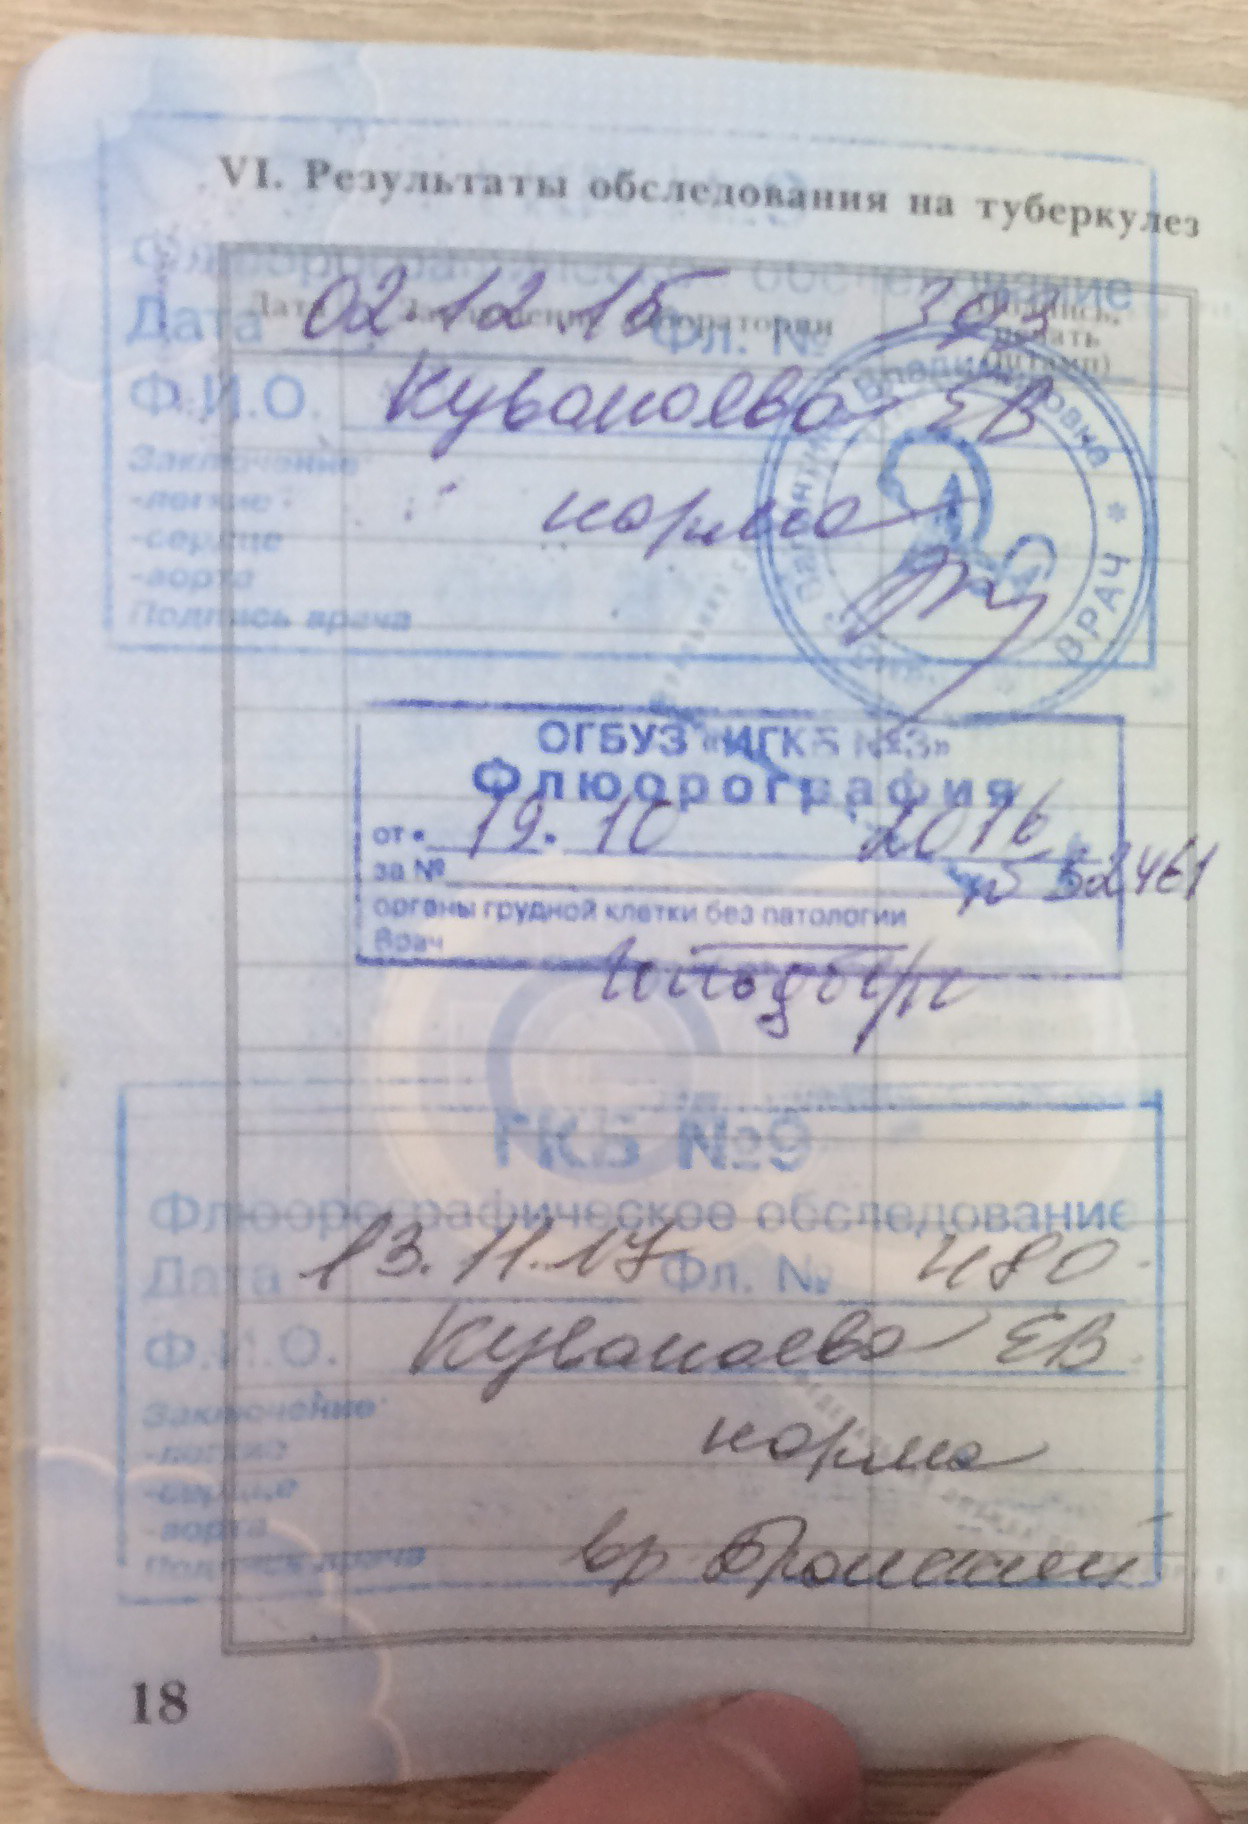 VI. Результаты обследования на туберкулез
Флюорографическое обследование
Дата 02 12 15 Фл. № 393
Ф.И.О. Куванаева ЕВ
Заключение:
-легкие норма
-сердце
-аорта
Подпись врача
Владимировна * ВРАЧ
ОГБУЗ «ИГКБ №3»
Флюорография
от « 19. » 10 2016
за № 52461
органы грудной клетки без патологии
Врач
ГКБ №9
Флюорографическое обследование
Дата 13.11.17 Фл. № 480
Ф.И.О. Куванаева ЕВ
Заключение:
-легкие норма
-сердце
-аорта
Подпись врача вр
18